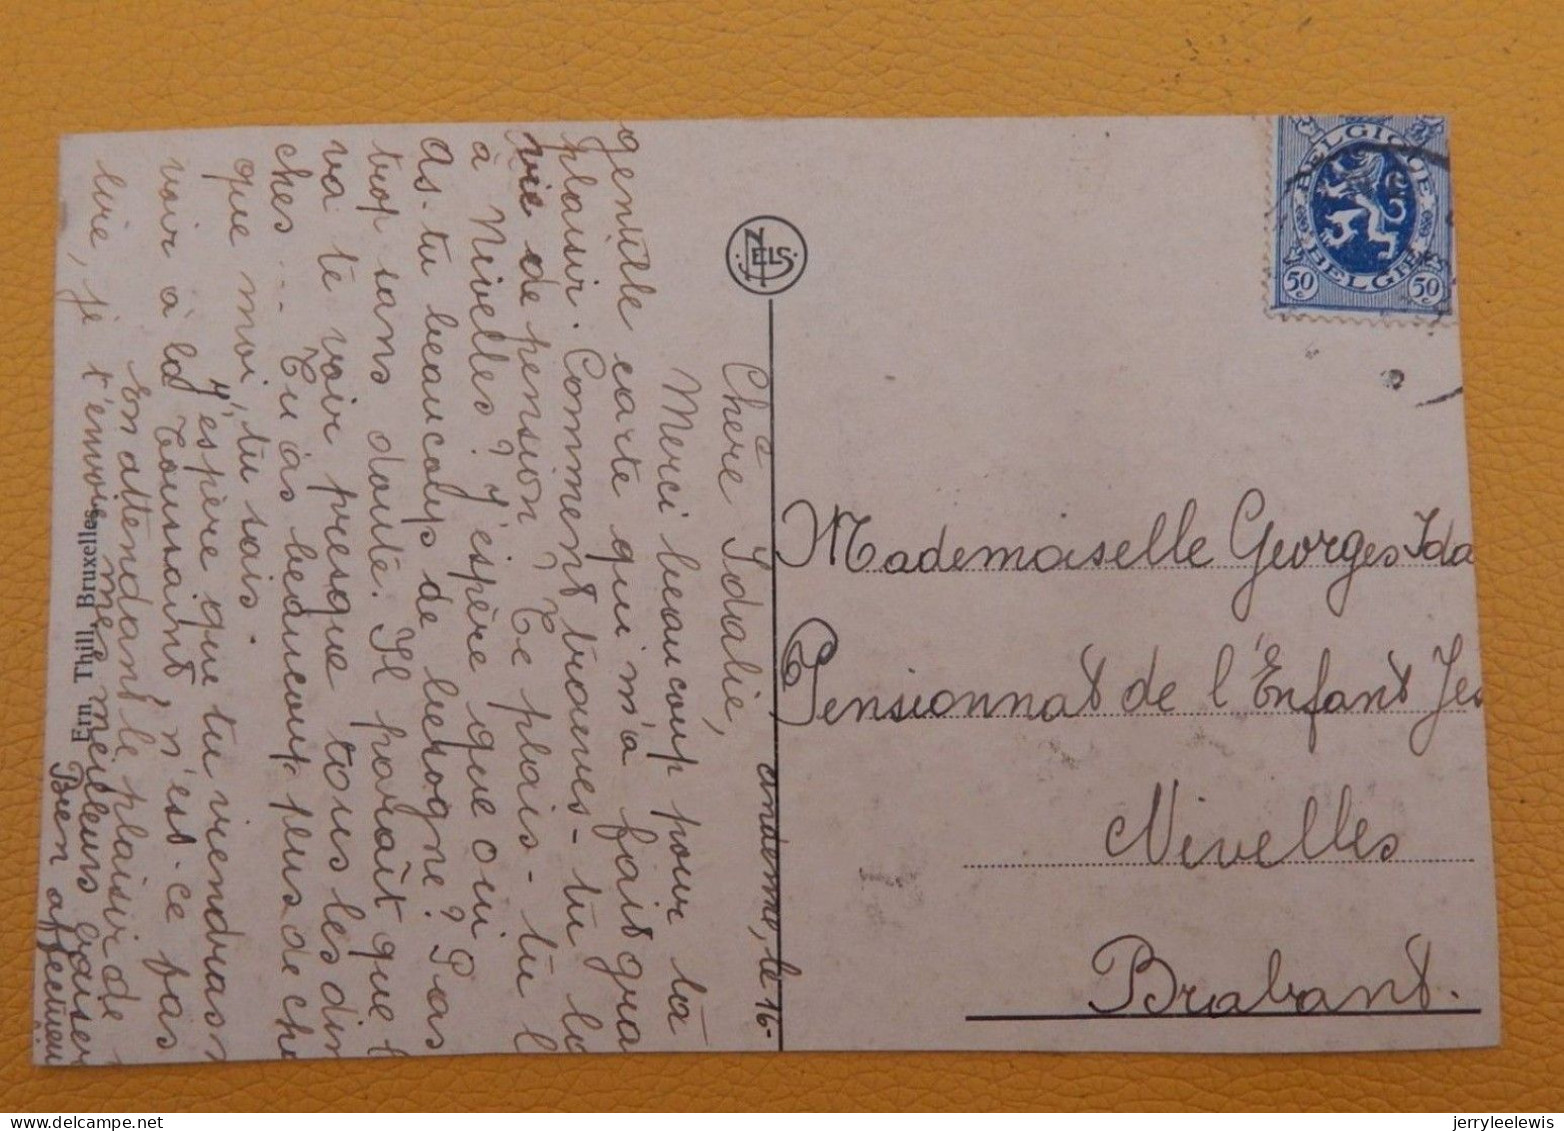 andenne, le 16-
Chère Idalie,
Merci beaucoup pour ta
gentille carte qui m'a fait gra
plaisir. Comment trouves-tu la
vie de pension? Te plais-tu l
à Nivelles? J'espère que oui
as-tu beaucoup de besogne? Pas
trop sans doute. Il paraît que l
va te voir presque tous les dim
ches...
Tu as beaucoup plus de cha
que moi, tu sais.
J'espère que tu viendras n
voir à la Toussaint, n'est-ce pas
En attendant le plaisir de
lire, je t'envoie mes meilleurs baisers
Bien affectueu
Ern. Thill, Bruxelles.
NELS
BELGIQUE
BELGIE
50 c
50 c
Mademoiselle Georges Ida
Pensionnat de l'Enfant Jes
Nivelles
Brabant.
jerryleelewis